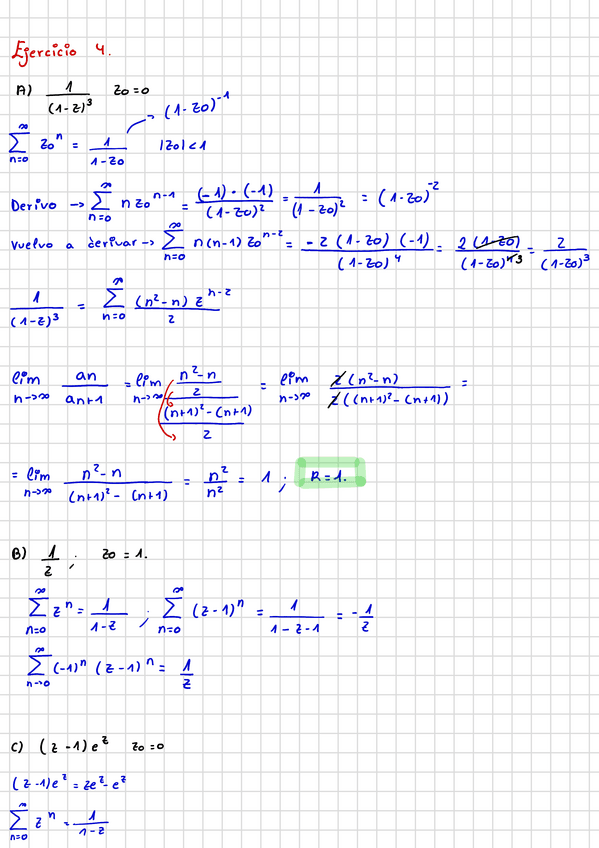 Ejercicio 4.
A) 1/(1-z)^3 z0=0
(1-z0)^-1
∑_{n=0}^∞ z0^n = 1/(1-z0) |z0|<1
Derivo → ∑_{n=0}^∞ n z0^{n-1} = (-1)·(-1)/(1-z0)^2 = 1/(1-z0)^2 = (1-z0)^-2
Vuelvo a derivar → ∑_{n=0}^∞ n(n-1) z0^{n-2} = -2(1-z0)(-1)/(1-z0)^4 = 2(1-z0)/(1-z0)^{4 3} = 2/(1-z0)^3
1/(1-z)^3 = ∑_{n=0}^∞ (n^2-n) z^{n-2}/2
lim_{n→∞} an/an+1 = lim_{n→∞} ((n^2-n)/2)/(((n+1)^2-(n+1))/2) = lim_{n→∞} 2(n^2-n)/2((n+1)^2-(n+1)) =
= lim_{n→∞} (n^2-n)/((n+1)^2-(n+1)) = n^2/n^2 = 1; R=1.
B) 1/z; z0=1.
∑_{n=0}^∞ z^n = 1/(1-z); ∑_{n=0}^∞ (z-1)^n = 1/(1-z-1) = -1/z
∑_{n→0}^∞ (-1)^n (z-1)^n = 1/z
C) (z-1)e^z z0=0
(z-1)e^z = ze^z-e^z
∑_{n=0}^∞ z^n = 1/(1-z)